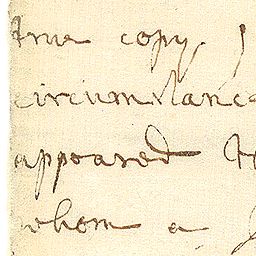 true copy,
circumstance
appeared to
whom a